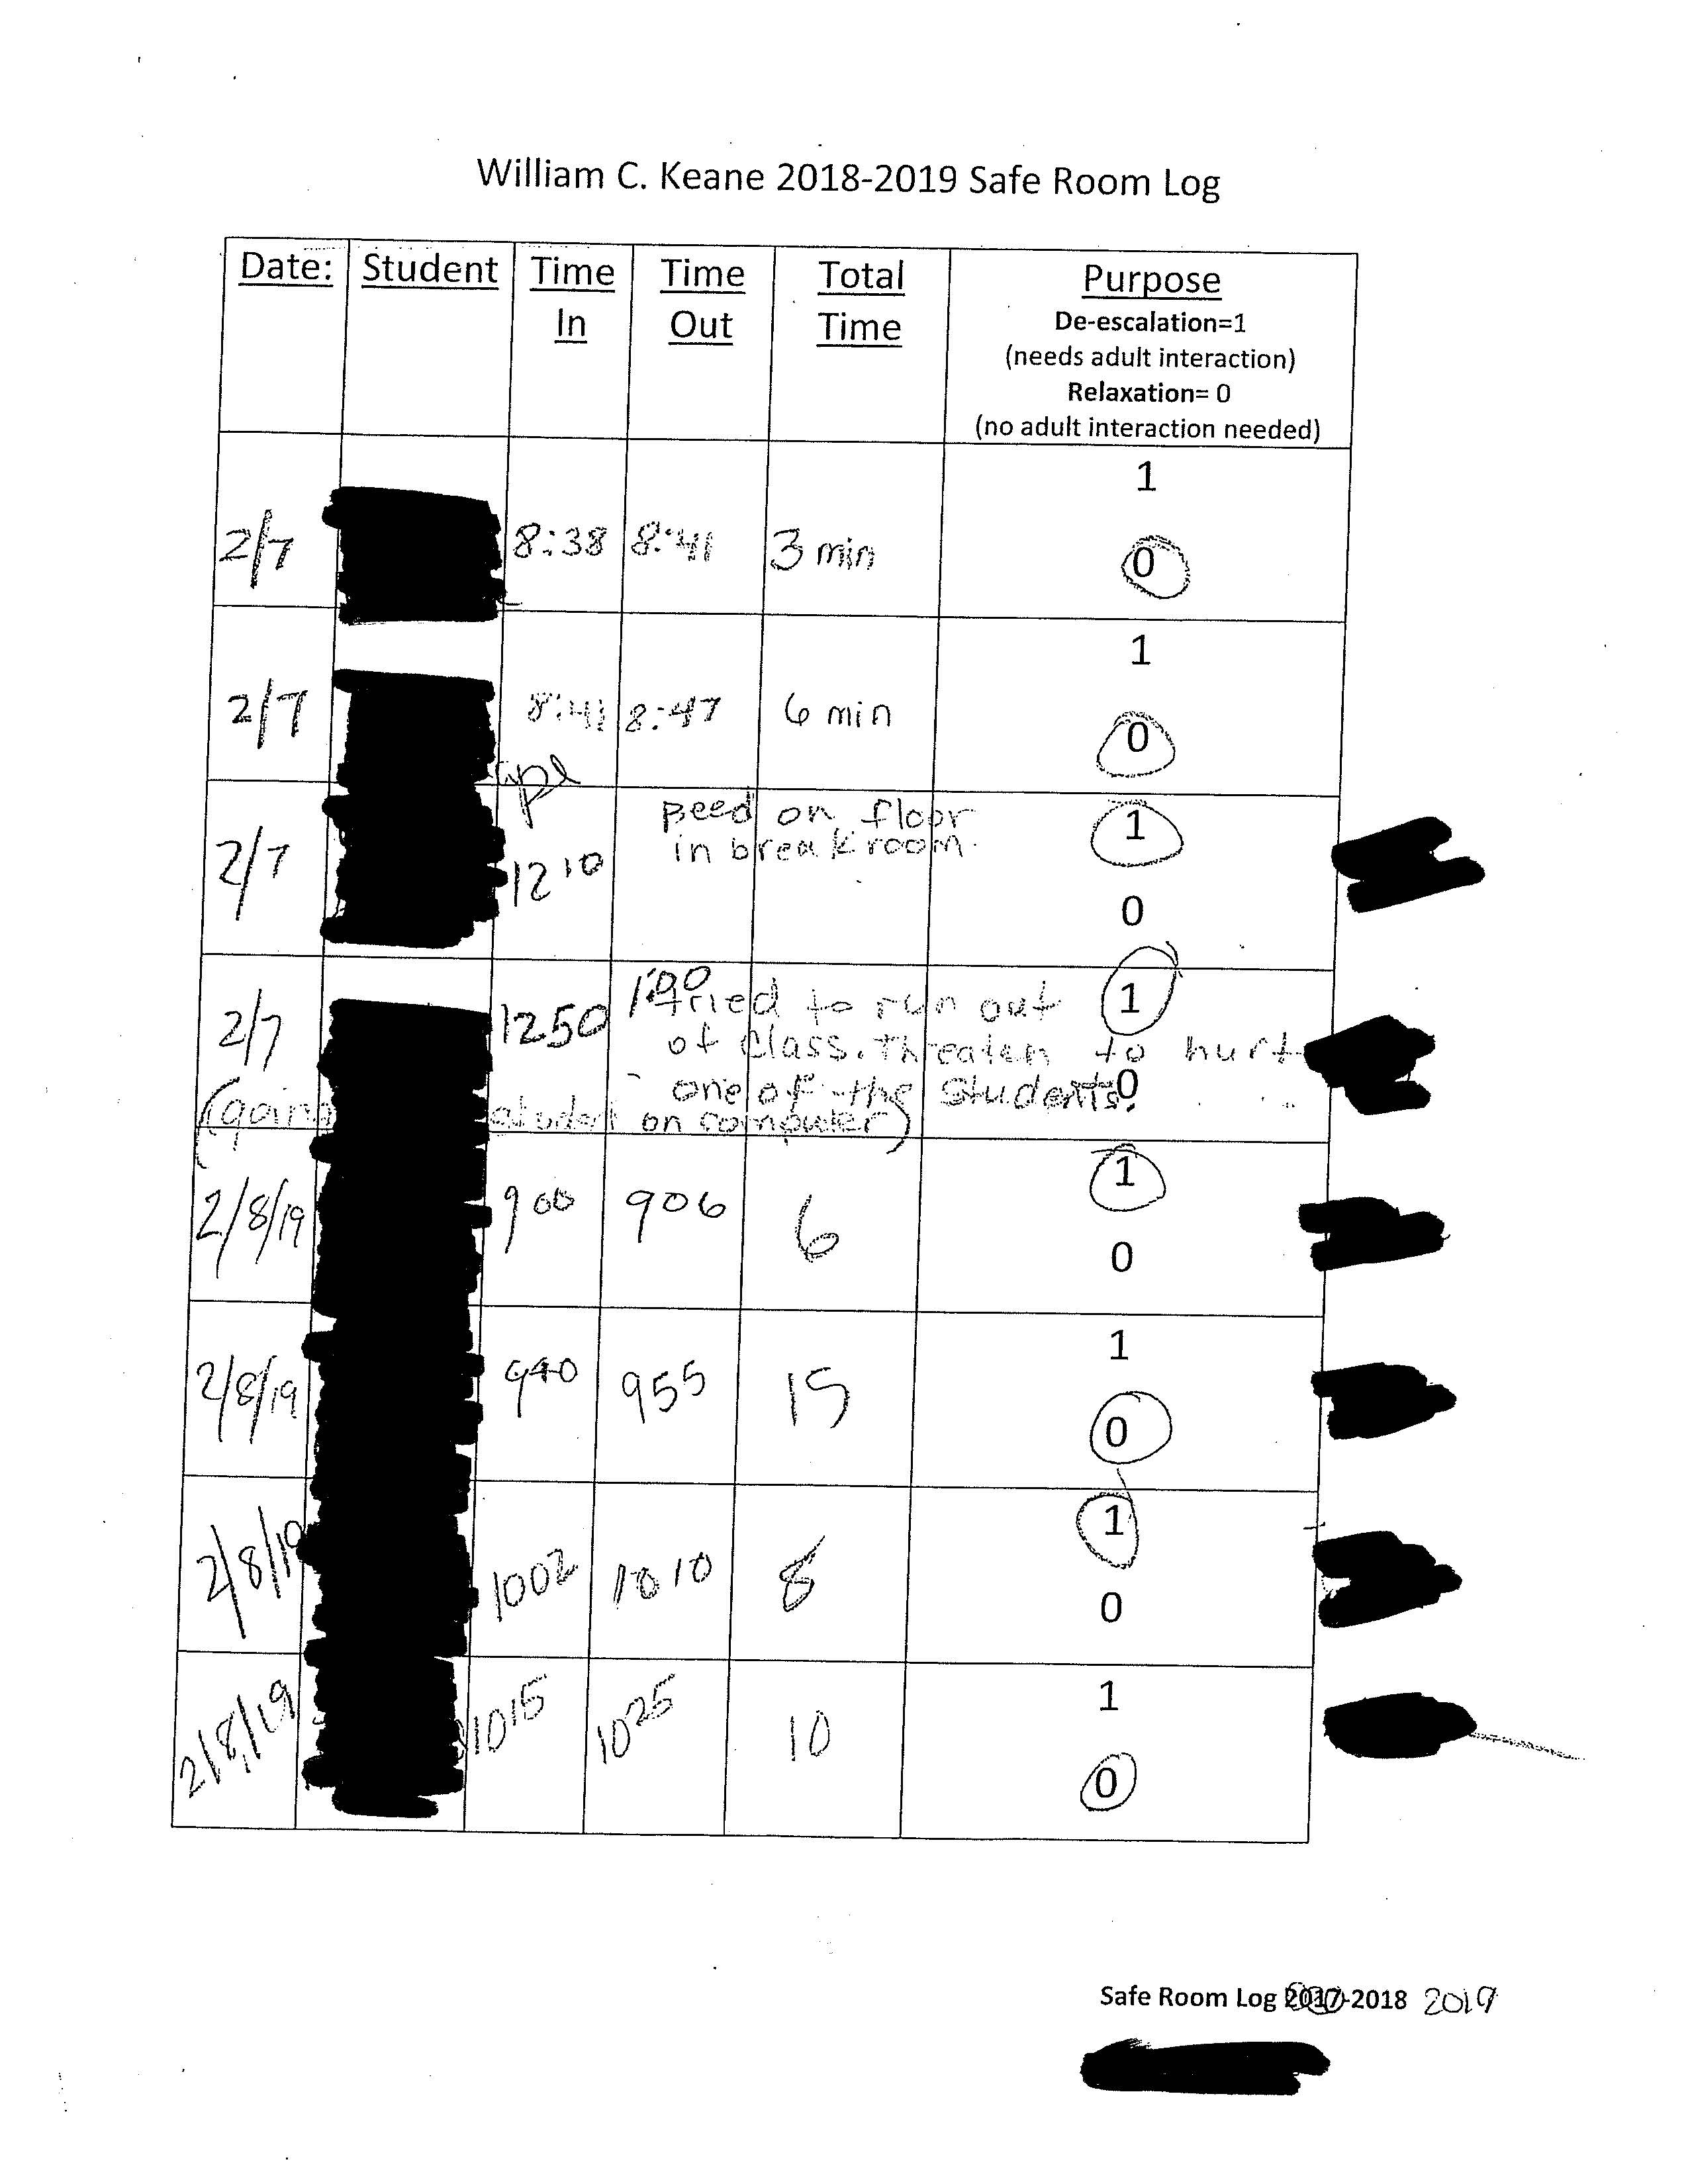 William C. Keane 2018-2019 Safe Room Log
Date: Student Time In Time Out Total Time Purpose
De-escalation=1
(needs adult interaction)
Relaxation= 0
(no adult interaction needed)
1
2/7 8:38 8:41 3 min 0
1
2/7 8:41 8:47 6 min 0
peed on floor 1
in breakroom.
2/7 12 10
0
2/7 1250 1:00 1
tried to run out
of class. Threaten to hurt
one of the students. 0
(going student on computer)
1
2/8/19 900 906 6
0
1
2/8/19 940 955 15
0
1
2/8/19 1002 1010 8
0
1
2/8/19 1015 1025 10
0
Safe Room Log 2017-2018 2019